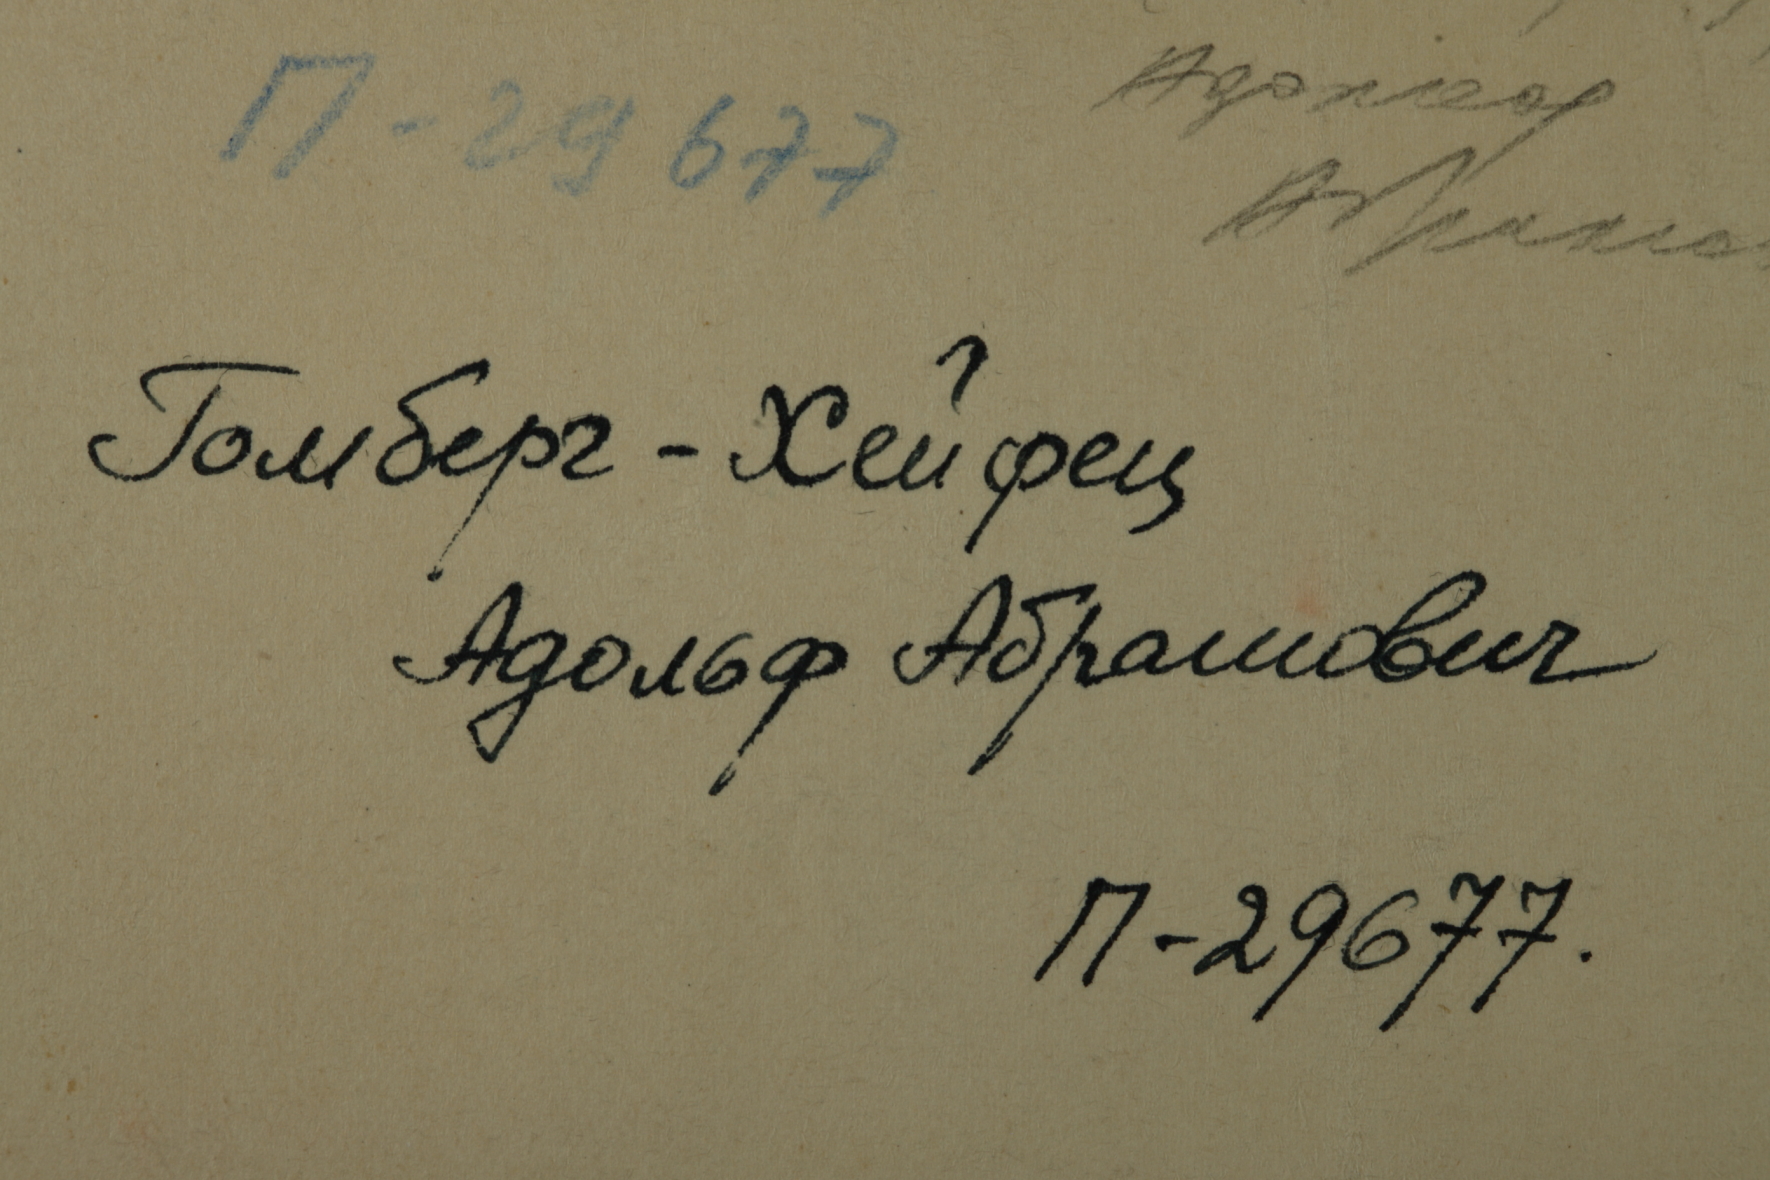 П-29677
Адольф
Абрамов
Гомберг-Хейфец
Адольф Абрамович
П-29677.